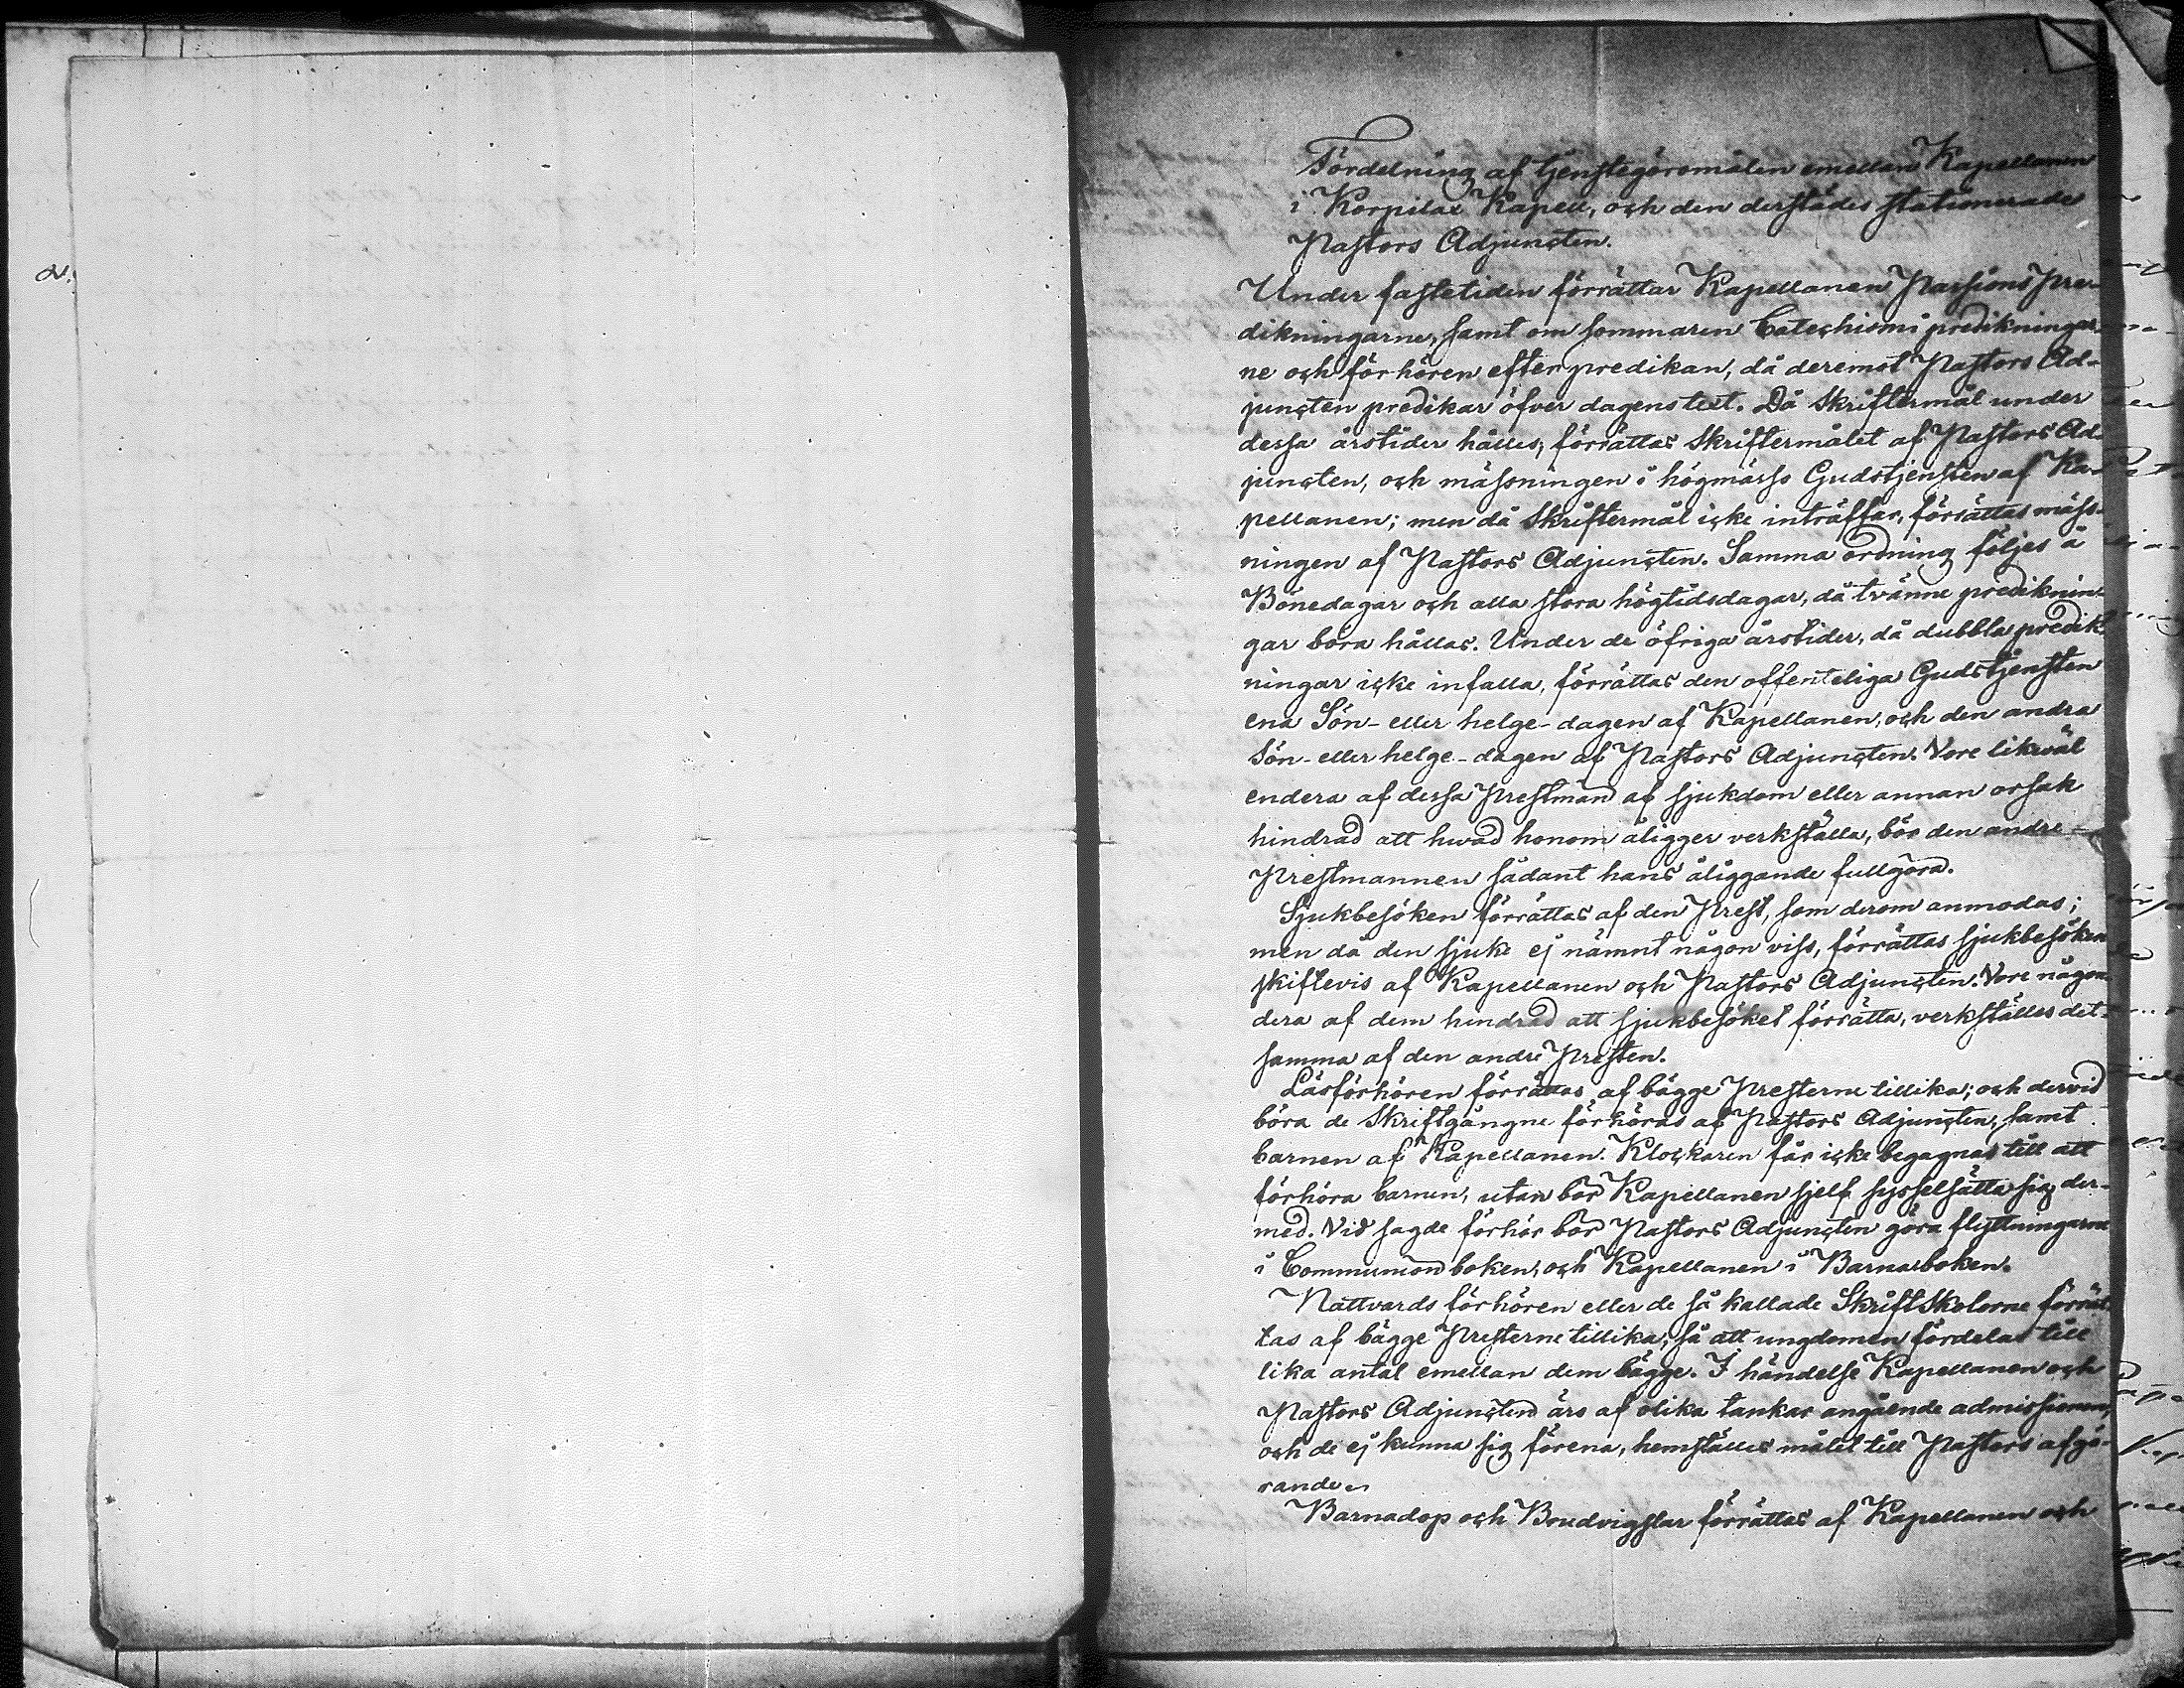 Fördelning af tjenstegöromålen emellan Kapellanen
i Korpilax Kapell, och den derstädes stationerade
Pastors Adjuncten.
Under fastetiden förrättar Kapellanen Passions Pre-
dikningarne, samt om sommaren Catechismi predikningar-
ne och förhören efter predikan, då deremot Pastors Ad-
juncten predikar öfver dagens text. Då Skriftermål under
dessa årstider hålles, förrättas Skriftermålet af Pastors Ad-
juncten, och mässningen i högmässo Gudstjensten af Ka-
pellanen; men då Skriftermål icke inträffar, förrättas mäss-
ningen af Pastors Adjuncten. Samma ordning följes å
Bönedagar och alla stora högtidsdagar, då tvänne prediknin-
gar böra hållas. Under de öfriga årstider, då dubbla predik-
ningar icke infalla, förrättas den offenteliga Gudstjensten
ena Sön- eller helge-dagen af Kapellanen, och den andra
Sön- eller helge-dagen af Pastors Adjuncten. Vore likväl
endera af dessa Prestmän af sjukdom eller annan orsak
hindrad att hwad honom åligger verkställa, bör den andre
Prestmannen sådant hans åliggande fullgöra.
Sjukbesöken förrättas af den Prest, som derom anmodas;
men då den sjuke ej nämnt någon viss, förrättas sjukbesöken
skiftevis af Kapellanen och Pastors Adjuncten. Vore någon-
dera af dem hindrad att sjukbesöket förrätta, verkställes det-
samma af den andre Presten.
Läsförhören förrättas af bägge Presterne tillika; och dervid
böra de Skriftgångne förhöras af Pastors Adjuncten, samt
barnen af Kapellanen. Klockaren får icke begagnas till att
förhöra barnen, utan bör Kapellanen sjelf sysselsätta sig der-
med. Vid sagde förhör bör Pastors Adjuncten göra flyttningarne
i Communion boken, och Kapellanen i Barnaboken.
Nattvards förhören eller de så kallade Skriftskolorne förrät-
tas af bägge Presterne tillika, så att ungdomen fördelas till
lika antal emellan dem bägge. I händelse Kapellanen och
Pastors Adjuncten äro af olika tankar angående admissionen,
och de ej kunna sig förena, hemställes målet till Pastors afgö-
rande.
Barnadop och Brudvigslar förrättas af Kapellanen och